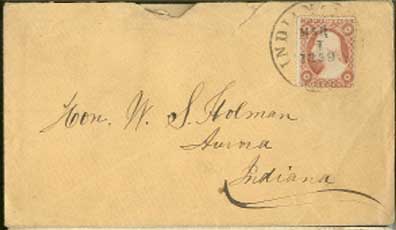 INDIAN
MAR
1
1859
Hon. W. S. Holman
Aurora
Indiana